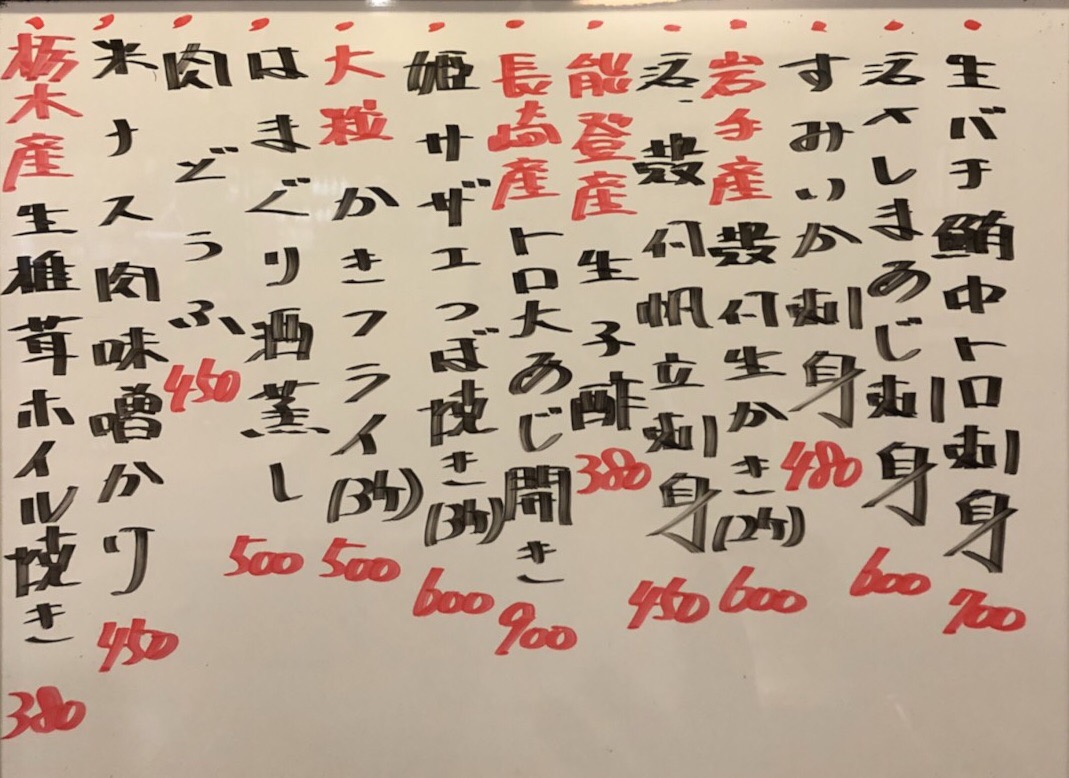 生バチ鮪中トロ刺身 700
活〆しまあじ刺身 600
すみいか刺身 480
岩手産殻付生かき(2ケ) 600
活殻付帆立刺身 450
能登産生子酢 380
長崎産トロ大あじ開き 900
姫サザエつぼ焼き(3ケ) 600
大粒かきフライ(3ケ) 500
はまぐり酒蒸し 500
肉どうふ 450
米ナス肉味噌かけ 450
栃木産生椎茸ホイル焼き 380